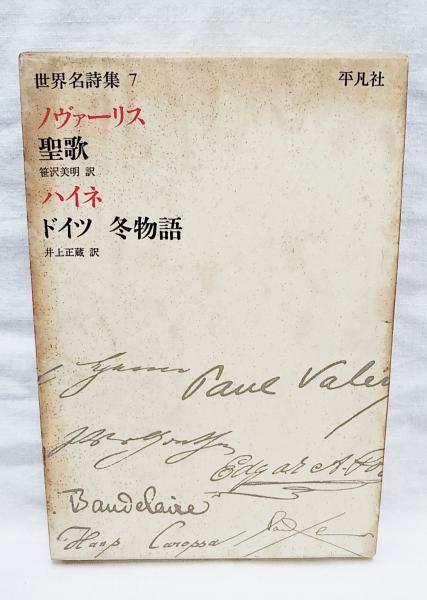 世界名詩集 7 平凡社
ノヴァーリス
聖歌
笹沢美明 訳
ハイネ
ドイツ 冬物語
井上正蔵 訳
Paul Valéry
Edgar A. Poe
Baudelaire
Hans Carossa